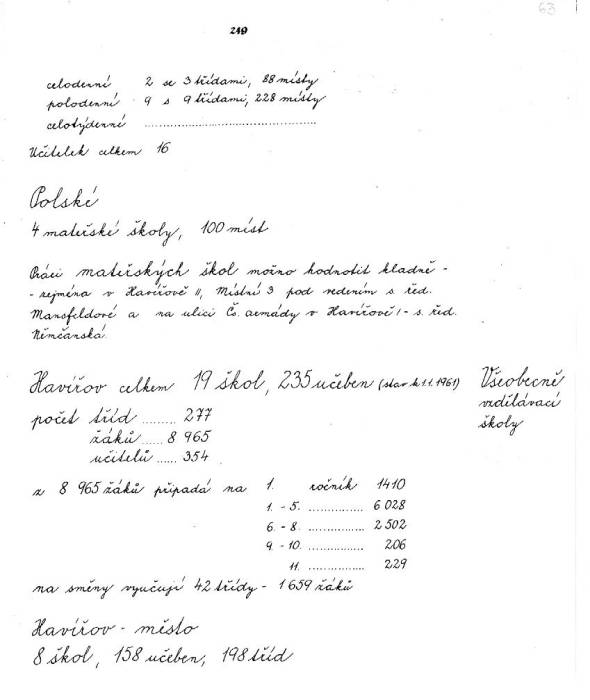 63
249
celodenní 2 se 3 třídami, 88 místy
polodenní 9 s 9 třídami, 228 místy
celotýdenní ..........................................
Učitelek celkem 16
Polské
4 mateřské školy, 100 míst
Práci mateřských škol možno hodnotit kladně -
- zejména v Havířově II, Místní 3 pod vedením s. řed.
Mansfeldové a na ulici Čs. armády v Havířově I - s. řed.
Němčanská.
Havířov celkem 19 škol, 235 učeben (stav k 1.1. 1961)
Všeobecně
vzdělávací
školy
počet tříd ......... 277
žáků ..... 8 965
učitelů ...... 354
z 8 965 žáků připadá na 1. ročník 1410
1. - 5. ................ 6 028
6. - 8. ................ 2 502
9. - 10. ................ 206
11. ................ 229
na směny vyučují 42 třídy - 1 659 žáků
Havířov - město
8 škol, 158 učeben, 198 tříd